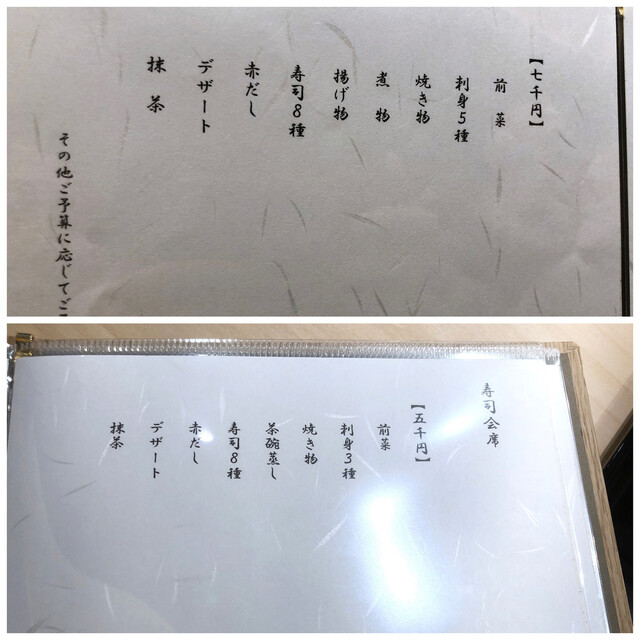 【七千円】
前菜
刺身5種
焼き物
煮物
揚げ物
寿司8種
赤だし
デザート
抹茶
その他ご予算に応じてご
寿司会席
【五千円】
前菜
刺身3種
焼き物
茶碗蒸し
寿司8種
赤だし
デザート
抹茶